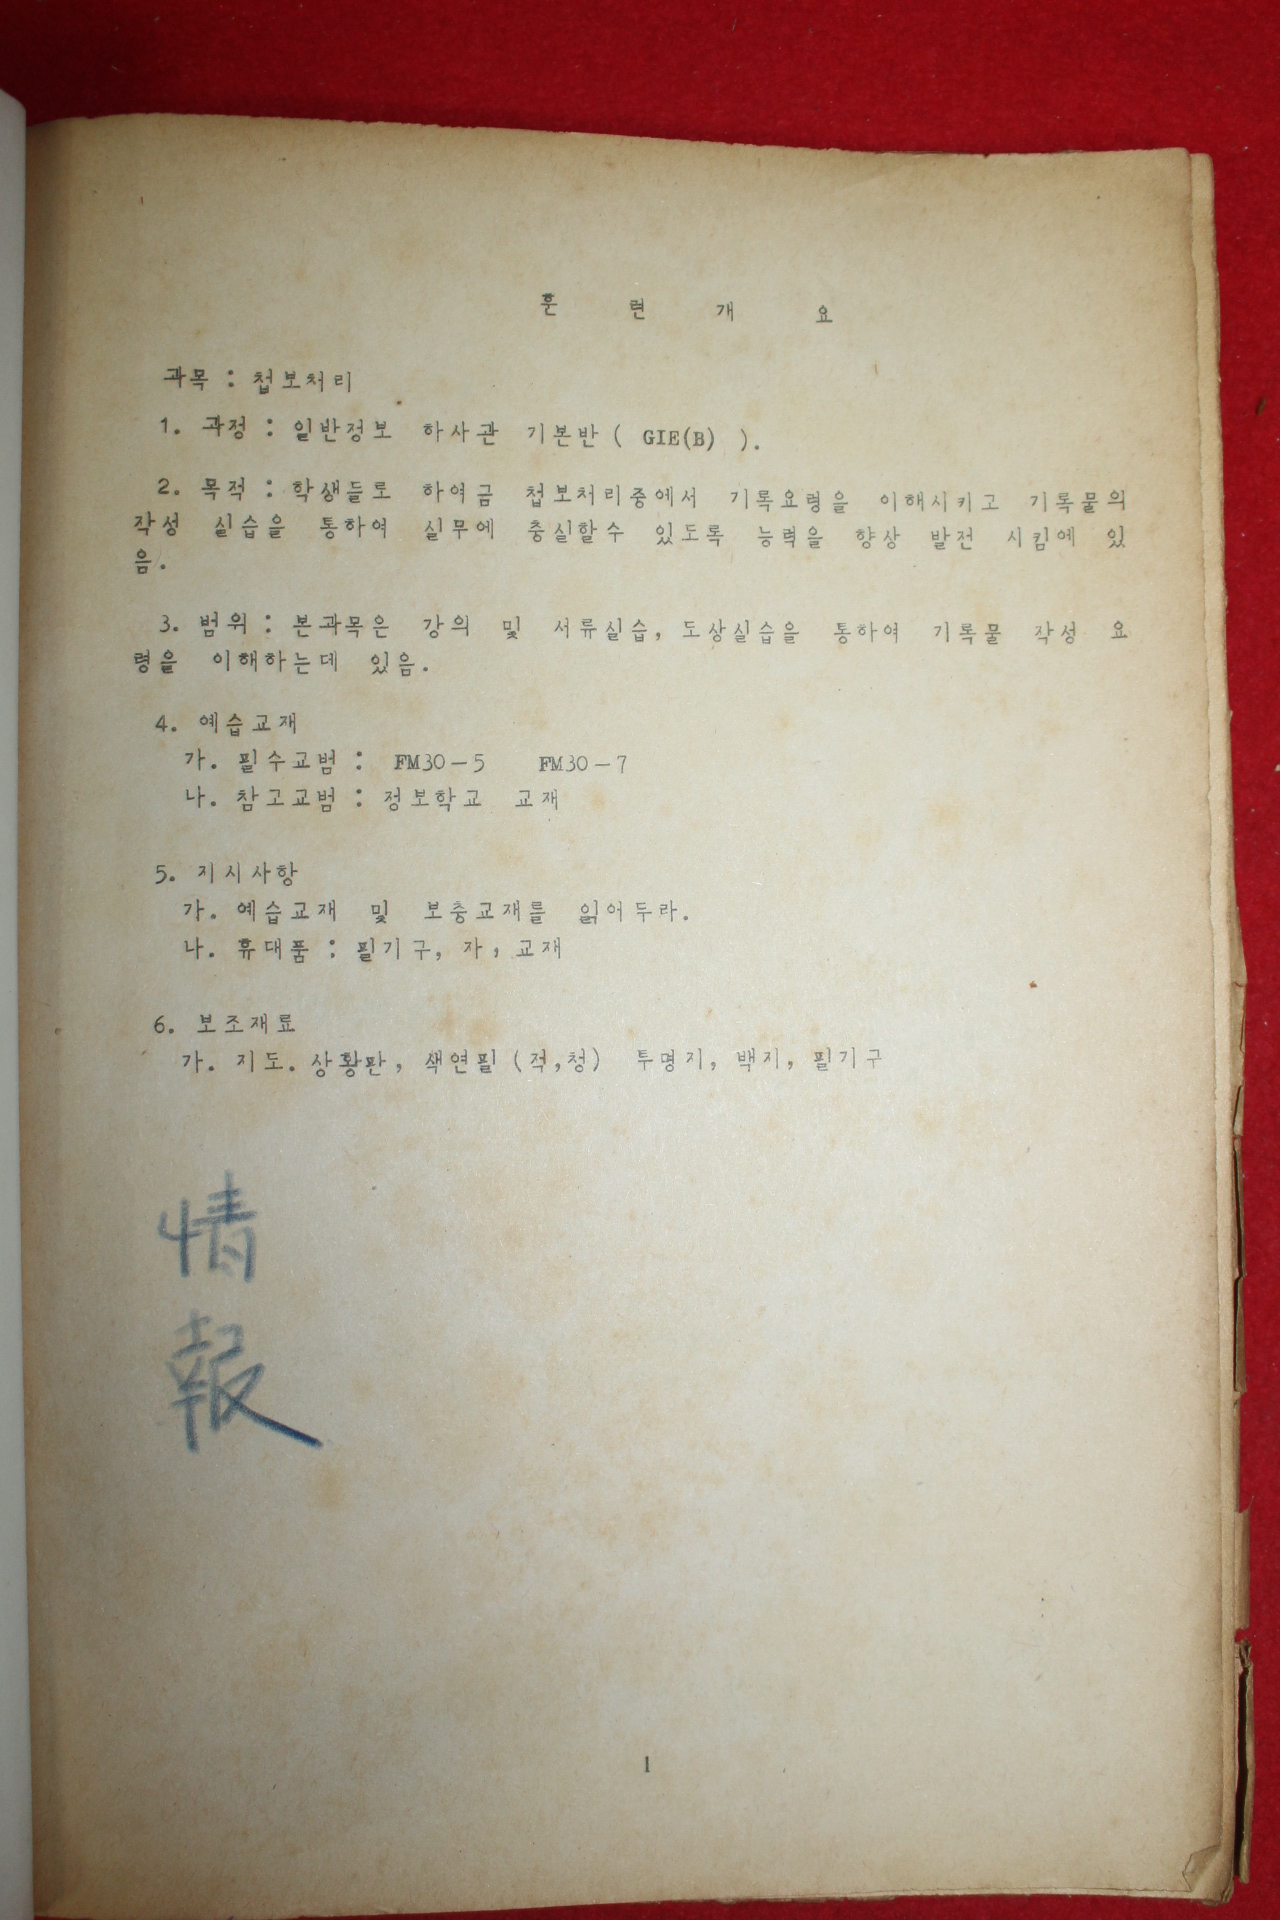 훈 련 개 요
과목 : 첩보처리
1. 과정 : 일반정보 하사관 기본반 ( GIE(B) ).
2. 목적 : 학생들로 하여금 첩보처리중에서 기록요령을 이해시키고 기록물의
작성 실습을 통하여 실무에 충실할수 있도록 능력을 향상 발전 시킴에 있
음.
3. 범위 : 본과목은 강의 및 서류실습, 도상실습을 통하여 기록물 작성 요
령을 이해하는데 있음.
4. 예습교재
가. 필수교범 : FM30-5 FM30-7
나. 참고교범 : 정보학교 교재
5. 지시사항
가. 예습교재 및 보충교재를 읽어두라.
나. 휴대품 : 필기구, 자, 교재
6. 보조재료
가. 지도. 상황판, 색연필 (적,청) 투명지, 백지, 필기구
情
報
1